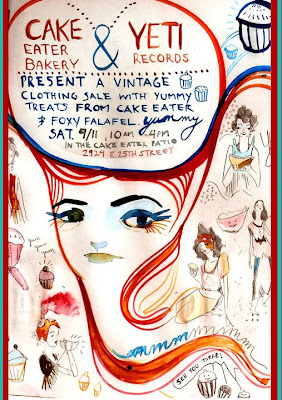 CAKE & YETI
EATER RECORDS
BAKERY
PRESENT A VINTAGE
CLOTHING SALE WITH YUMMY
TREATS FROM CAKE EATER
& FOXY FALAFEL. yummy
SAT. 9/11, 10AM-4PM
IN THE CAKE EATER PATIO
2929 E. 25TH STREET
mmmmmmm
SEE YOU THERE!